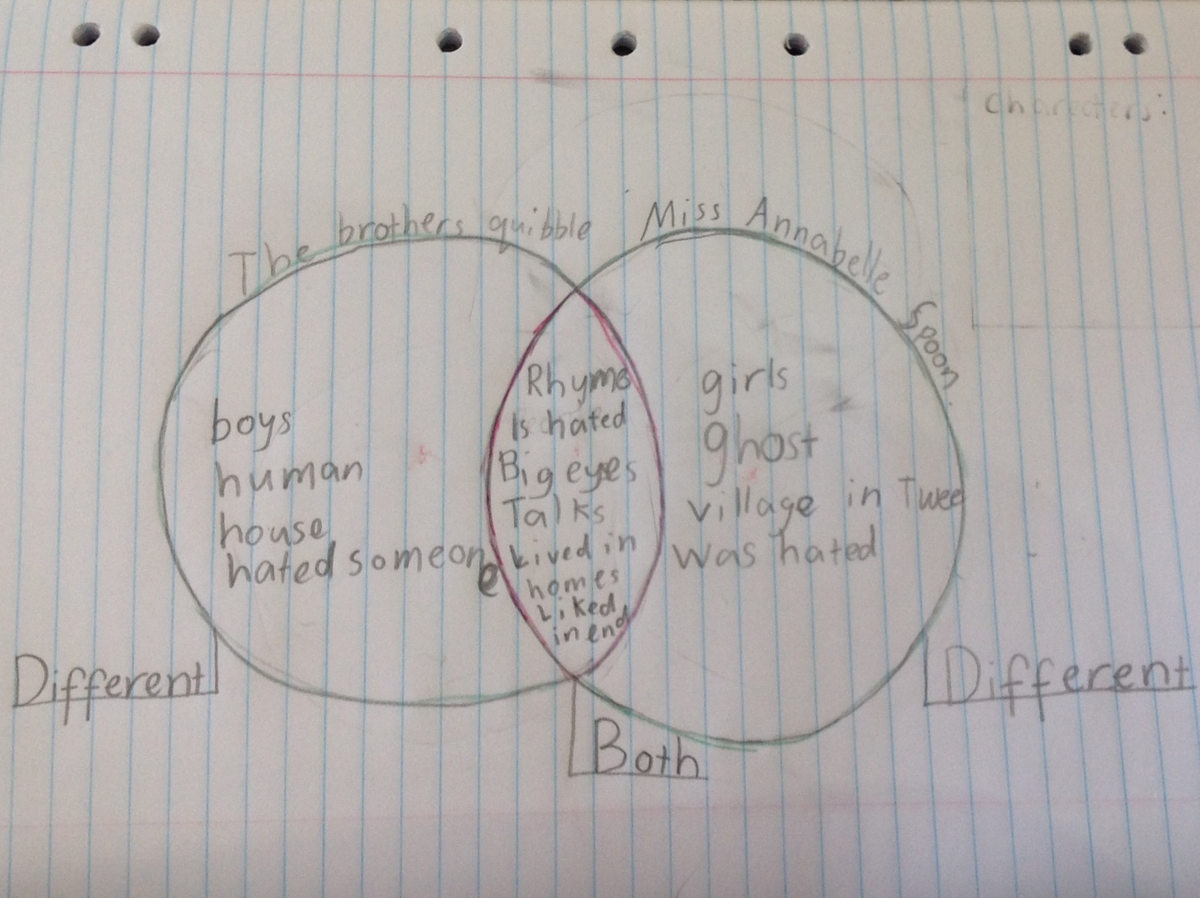 Characters:
The brothers quibble
Miss Annabelle Spoon.
boys
human
house
hated someone
Rhyme
Is hated
Big eyes
Talks
Lived in
homes
Liked
in end
girls
ghost
village in Twee
was hated
Different
Both
Different